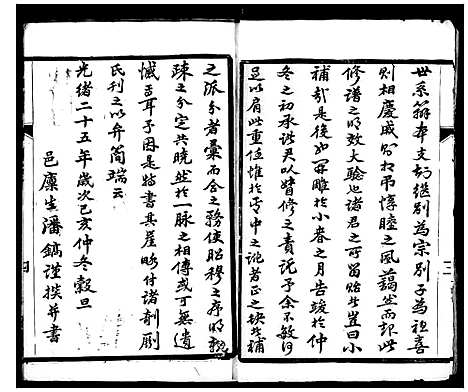 世系辨本支切继别為宗别子為祖喜
則相慶戚則相弔惇睦之風藹然而起此
修譜之明效大驗也諸君之所留貽豈曰小
補哉是後也開雕於小春之月告竣於仲
冬之初承諸君以督修之責託予余不敏何
足以肩此重位惟於其中之訛者正之缺者補
之派分者彙而合之務使昭穆之序明親
疎之分定共曉然於一脉之相傳或可無遺
憾焉耳予因是特書其崖略付諸剞劂
氏刊之以弁简端云
光緒二十五年歲次己亥仲冬穀旦
邑廪生潘鎬謹撰并書